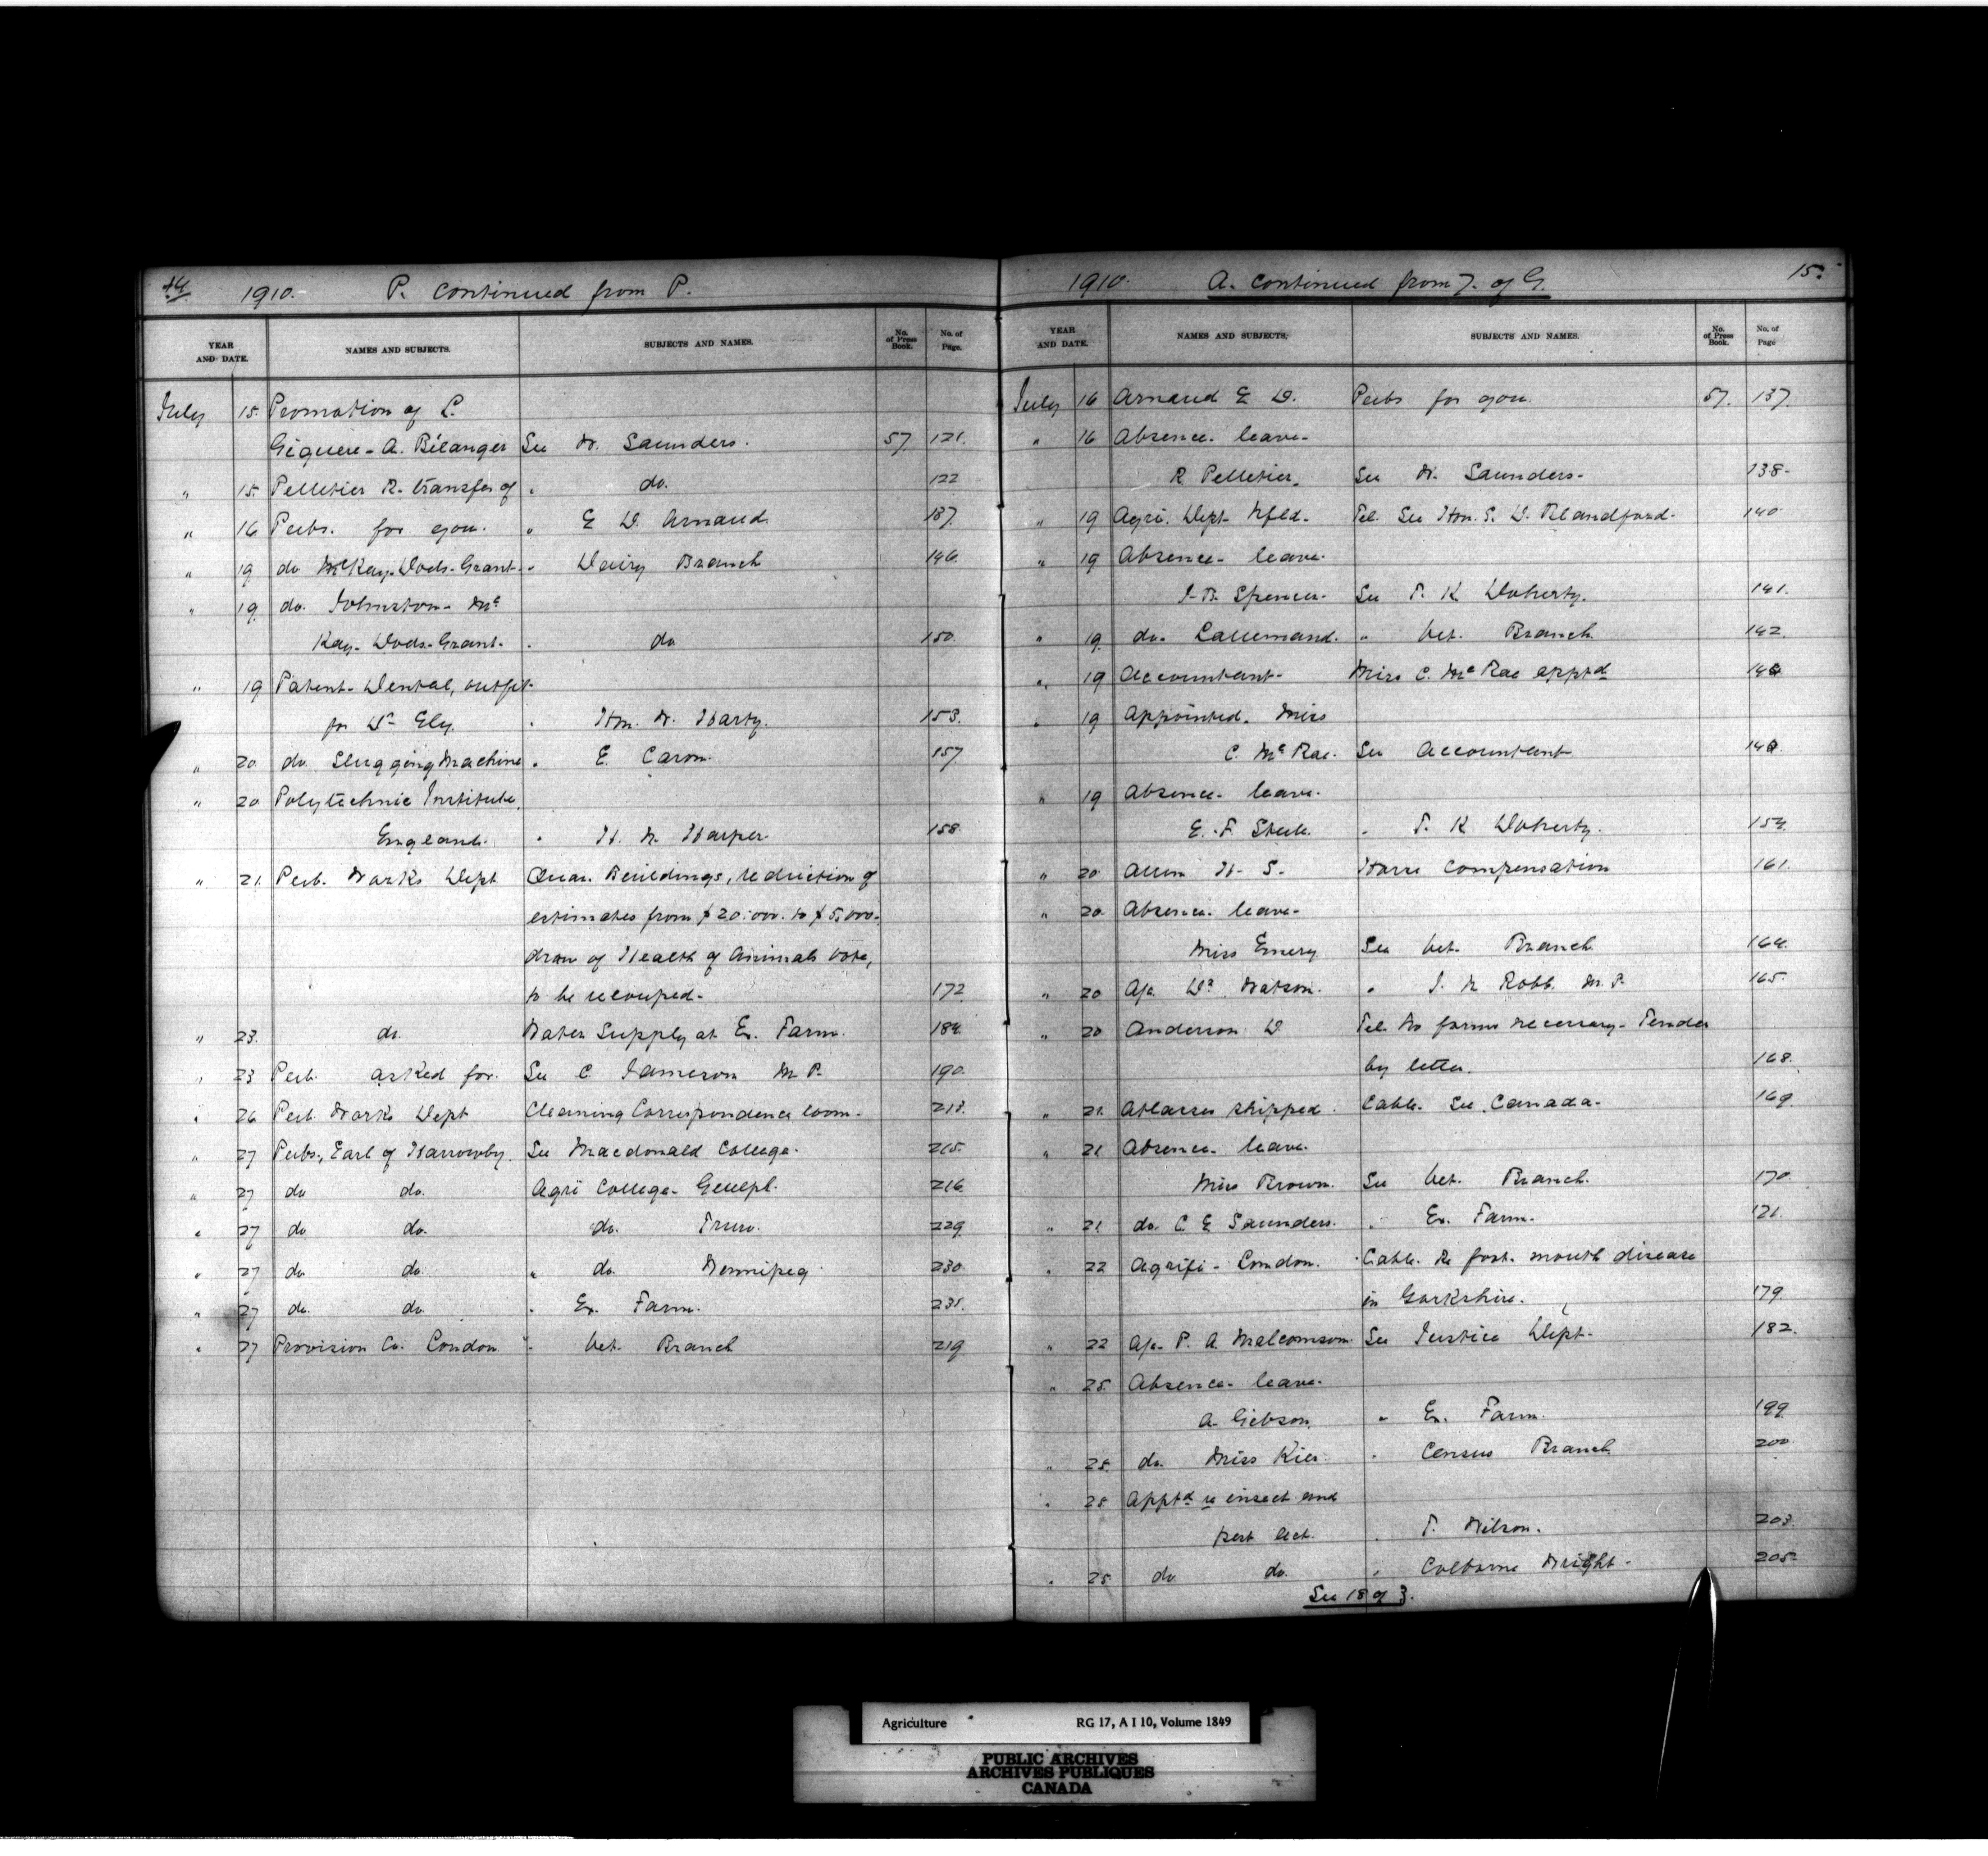 14 1910. P. continued from P.
YEAR AND DATE. NAMES AND SUBJECTS. SUBJECTS AND NAMES. No. of Press Book. No. of Page.
July 15. Promotion of L.
Giguere - A. Bélanger See W. Saunders. 57 121.
" 15. Pelletier R. transfer of " do. 122
" 16 Pubs. for you. " E D. Arnaud. 137.
" 19 do McKay-Dods-Grant- " Dairy Branch 146.
" 19. do. Johnston- Mc
Kay- Dods- Grant- " do 150.
" 19 Patent- Dental, outfit-
for Dr Ely. " Hon. W. Harty. 153.
" 20 do. Slugging Machine " E. Caron. 157
" 20 Polytechnic Institute,
England. " H. N. Harper 158
" 21. Pub. Works Dept Quar. Buildings, reduction of
estimates from $20.000. to $5,000.
draw of Health of Animals vote,
to be recouped- 172
" 23. do. Water Supply at Ex. Farm. 184.
" 23 Pub. asked for. See C. Jameson M.P. 190.
" 26 Pub. Works Dept Cleaning Correspondence room- 213.
" 27 Pubs., Earl of Harrowby. See Macdonald College. 215.
" 27 do do. Agri College- Guelph. 216
" 27 do do. do. Truro. 229.
" 27 do do. " do. Winnipeg 230.
" 27 do. do " Ex. Farm. 231.
" 27 Provision Co. London " Vet. Branch 219
1910. A. continued from 7. of G. 15.
YEAR AND DATE. NAMES AND SUBJECTS. SUBJECTS AND NAMES. No. of Press Book. No. of Page
July 16 Arnaud E D. Pubs for you. 57. 137.
" 16 Absence- leave-
R. Pelletier. See W. Saunders- 138-
" 19 Agri. Dept. Nfld- Tel. See Hon. S. D. Blandford- 140
" 19 Absence- leave-
J. B. Spencer- See T. K. Doherty. 141.
" 19. do. Lallemand. " Vet. Branch. 142.
" 19 Accountant- Miss C. McRae apptd
" 19 Appointed. Miss
C. McRae. See Accountant
" 19 Absence- leave.
E. F. Steele. " T. K Doherty. 154.
" 20 Allen H. S. Horse Compensation 161.
" 20. Absence- leave-
Miss Emery See Vet. Branch. 164.
" 20 A/c. Dr. Watson. " J. A Robb. M.P. 165.
" 20 Anderson D Tel. No forms necessary- Tender
by letter. 168.
" 21. Atlases shipped. Cable. See Canada- 169
" 21 Absence- leave.
Miss Brown. See Vet. Branch. 170
" 21 do. C. E Saunders. " Ex. Farm. 121.
" 22 Agrifi- London. Cable. Re foot. mouth disease
in Yorkshire. 179.
" 22 A/c- P. A. Malcomson. See Justice Dept- 182.
" 25. Absence- leave.
A. Gibson. " Ex. Farm. 199.
" 25. do. Miss Kier. " Census Branch 200
" 25 Apptd re insect and
pest act. " T. Wilson. 203.
" 25 do do. " Colborne Wright- 205
See 18 of 3.
Agriculture RG 17, A I 10, Volume 1849
PUBLIC ARCHIVES
ARCHIVES PUBLIQUES
CANADA